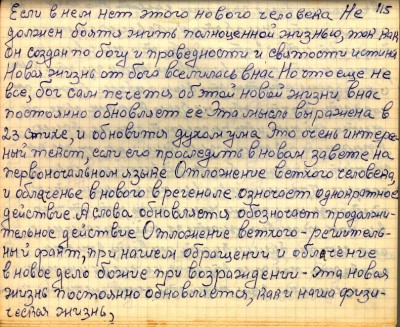 115
Если в нем нет этого нового человека Не
должен боятя жить полноценной жизнью, так как
он создан по богу и праведности и святости истина
Новая жизнь от бога вселилась в нас Но что еще не
все, бог сам печется об этой новой жизни в нас
постоянно обновляет её Эта мысль выражена в
23 стихе, и обновится духом ума Это очень интере-
ный текст, если его проследить в новам завете на
первоночальном языке Отложение ветхого человека,
и облаченье в нового в регенале означает однократное
действие А слова обновляется обозночает продолжи-
тельное действие Отложение ветхого - решитель-
ный факт, при нашем обращении и облачение
в новое дело божие при возраждении - эта новая
жизнь постоянно обновляется, как и наша физи-
ческая жизнь,